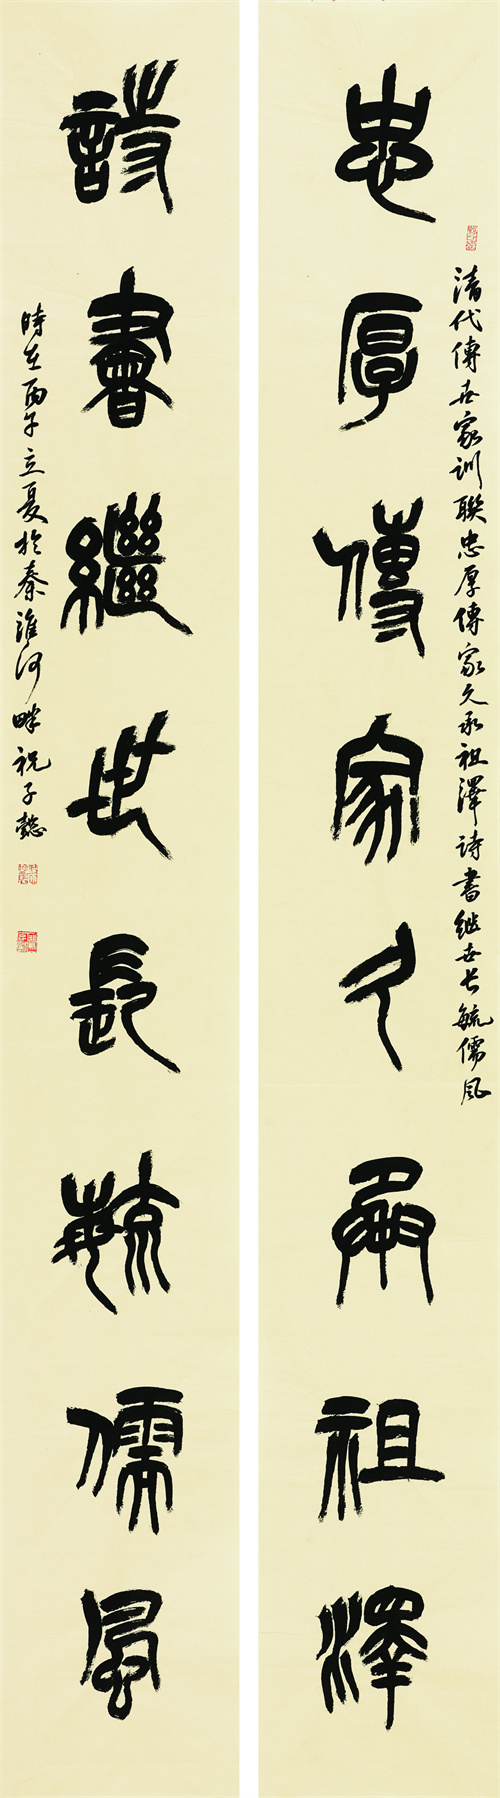 忠厚傳家久承祖澤
清代傳世家訓聯忠厚傳家久承祖澤詩書继世长毓儒风
詩書繼世長毓儒風
時在丙午立夏於秦淮河畔祝子懿